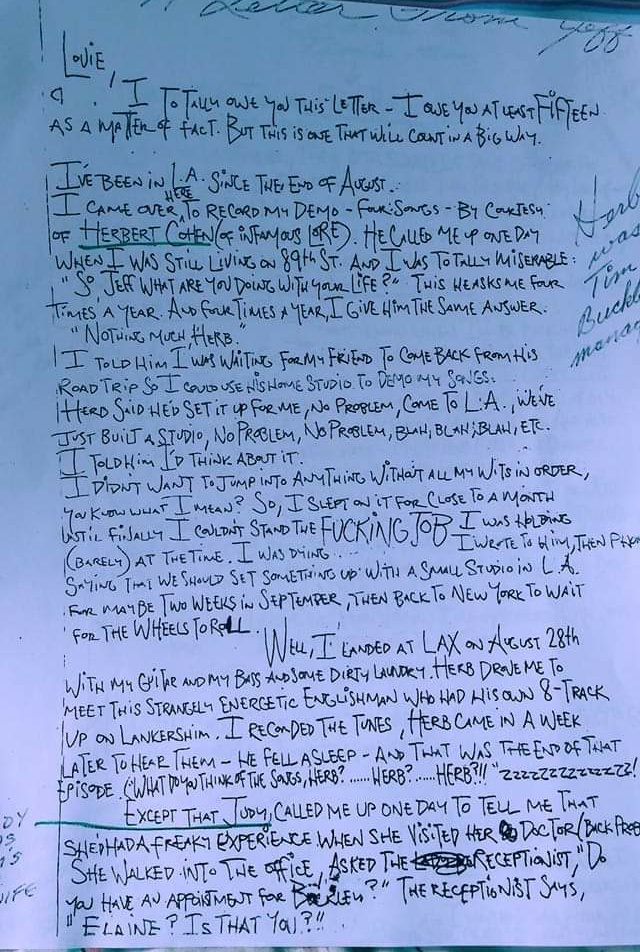 A Letter From Jeff
LOUIE,
I TOTALLY OWE YOU THIS LETTER - I OWE YOU AT LEAST FIFTEEN
AS A MATTER OF FACT. BUT THIS IS ONE THAT WILL COUNT IN A BIG WAY.
I'VE BEEN IN L.A. SINCE THE END OF AUGUST.
I CAME OVER HERE TO RECORD MY DEMO - FOUR SONGS - BY COURTESY
OF HERBERT COHEN (OF INFAMOUS LORE). HE CALLED ME UP ONE DAY
WHEN I WAS STILL LIVING ON 89TH ST. AND I WAS TOTALLY MISERABLE:
"SO, JEFF WHAT ARE YOU DOING WITH YOUR LIFE?" THIS HE ASKS ME FOUR
TIMES A YEAR. AND FOUR TIMES A YEAR, I GIVE HIM THE SAME ANSWER.
"NOTHING MUCH, HERB."
I TOLD HIM I WAS WAITING FOR MY FRIEND TO COME BACK FROM HIS
ROAD TRIP SO I COULD USE HIS HOME STUDIO TO DEMO MY SONGS.
HERB SAID HE'D SET IT UP FOR ME, NO PROBLEM, COME TO L.A., WE'VE
JUST BUILT A STUDIO, NO PROBLEM, NO PROBLEM, BLAH, BLAH, BLAH, ETC.
I TOLD HIM I'D THINK ABOUT IT.
I DIDN'T WANT TO JUMP INTO ANYTHING WITHOUT ALL MY WITS IN ORDER,
YOU KNOW WHAT I MEAN? SO, I SLEPT ON IT FOR CLOSE TO A MONTH
UNTIL FINALLY I COULDN'T STAND THE FUCKING JOB I WAS HOLDING
(BARELY) AT THE TIME. I WAS DYING... I WROTE TO HIM, THEN
SAYING THAT WE SHOULD SET SOMETHING UP WITH A SMALL STUDIO IN L.A.
FOR MAYBE TWO WEEKS IN SEPTEMBER, THEN BACK TO NEW YORK TO WAIT
FOR THE WHEELS TO ROLL.
WELL, I LANDED AT LAX ON AUGUST 28th
WITH MY GUITAR AND MY BASS AND SOME DIRTY LAUNDRY. HERB DROVE ME TO
MEET THIS STRANGELY ENERGETIC ENGLISHMAN WHO HAD HIS OWN 8-TRACK
UP ON LANKERSHIM. I RECORDED THE TUNES, HERB CAME IN A WEEK
LATER TO HEAR THEM - HE FELL ASLEEP - AND THAT WAS THE END OF THAT
EPISODE. (WHAT DO YOU THINK OF THE SONGS, HERB?......HERB?.....HERB?!! "ZZZZZZZZZZZZZ!
EXCEPT THAT JUDY, CALLED ME UP ONE DAY TO TELL ME THAT
SHE'D HAD A FREAKY EXPERIENCE WHEN SHE VISITED HER DOCTOR/BACK
SHE WALKED INTO THE OFFICE, ASKED THE RECEPTIONIST, "DO
YOU HAVE AN APPOINTMENT FOR BUCKLEY?" THE RECEPTIONIST SAYS,
"ELAINE? IS THAT YOU?"
Herb
was
Tim
Buckley